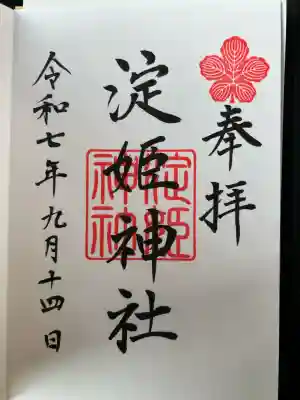 奉拝
淀姫神社
淀姫神社
令和七年九月十四日